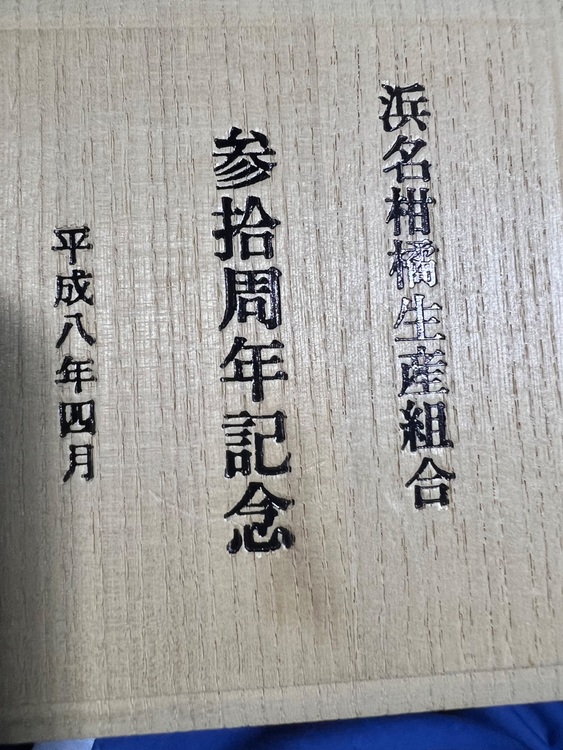 浜名柑橘生産組合
参拾周年記念
平成八年四月